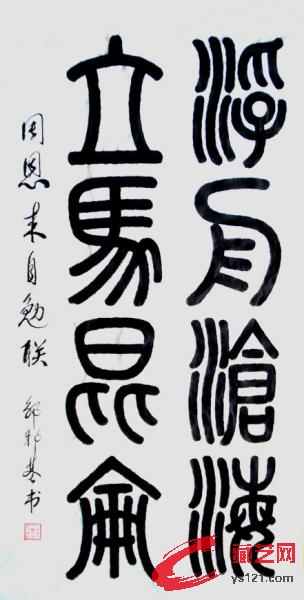 浮舟滄海
立馬昆侖
周恩来自勉联
书
藏艺网
ys121.com